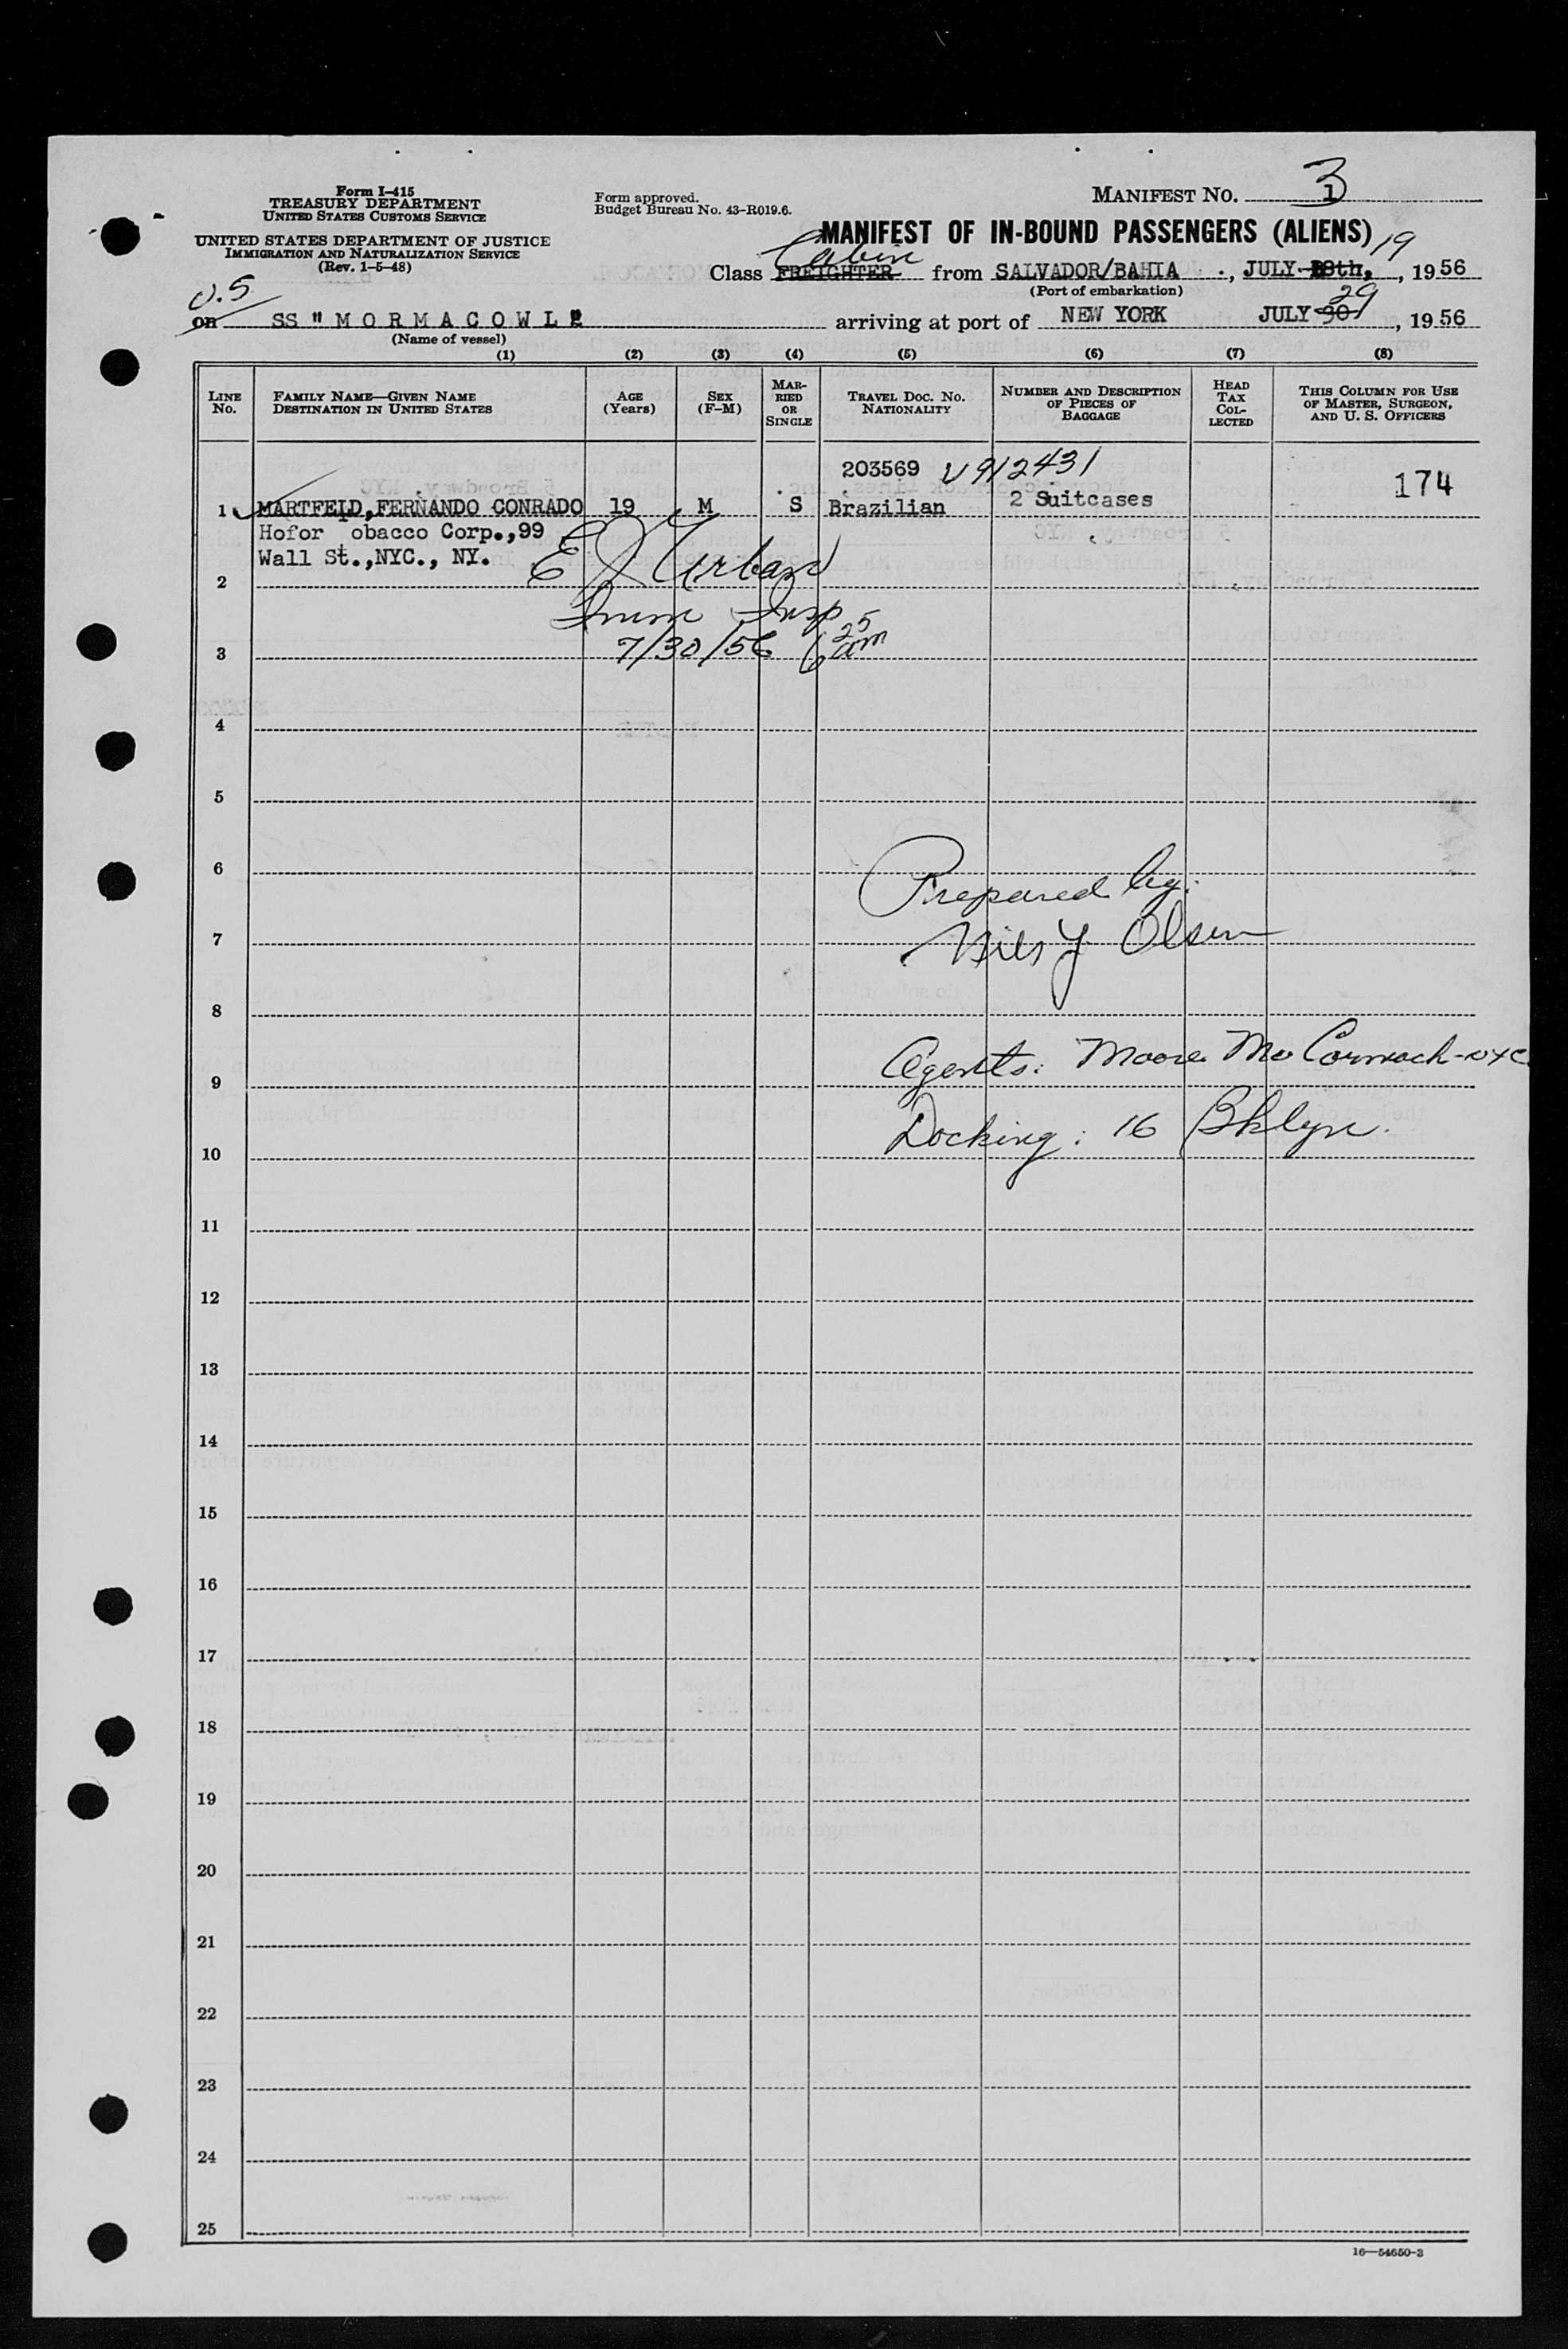 Form I-415
TREASURY DEPARTMENT
UNITED STATES CUSTOMS SERVICE
UNITED STATES DEPARTMENT OF JUSTICE
IMMIGRATION AND NATURALIZATION SERVICE
(Rev. 1-5-48)
Form approved.
Budget Bureau No. 43-R019.6.
MANIFEST NO. 1 3
MANIFEST OF IN-BOUND PASSENGERS (ALIENS)
Cabin 19
Class FREIGHTER from SALVADOR/BAHIA ., JULY 18th, , 1956
(Port of embarkation)
U.S. 29
on SS "MORMACOWL" arriving at port of NEW YORK JULY 30 , 1956
(Name of vessel)
(1) (2) (3) (4) (5) (6) (7) (8)
LINE No.
FAMILY NAME—GIVEN NAME
DESTINATION IN UNITED STATES
AGE
(Years)
SEX
(F-M)
MAR-
RIED
OR
SINGLE
TRAVEL DOC. NO.
NATIONALITY
NUMBER AND DESCRIPTION
OF PIECES OF
BAGGAGE
HEAD
TAX
COL-
LECTED
THIS COLUMN FOR USE
OF MASTER, SURGEON,
AND U. S. OFFICERS
203569 V912431
1 MARTFELD,FERNANDO CONRADO 19 M S Brazilian 2 Suitcases 174
Hofor obacco Corp.,99
Wall St.,NYC., NY.
E J Urban
2
Imm Insp
7/30/56 6 25 am
3
4
5
6
Prepared by:
7
Nils Y Olsen
8
Agents: Moore McCormack
9
Docking: 16 Bklyn.
10
11
12
13
14
15
16
17
18
19
20
21
22
23
24
25
16—54650-3